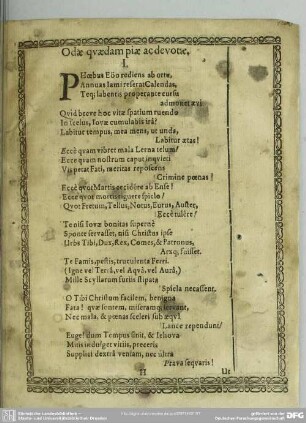 Odæ quædam piæ ac devotæ.
I.
PHœbus Eôo rediens ab ortu,
Annuas Iam reserat Calendas,
Teq; labentis properante cursu
admonet ævi
Quid breve hoc vitæ spatium ruendo
In scelus, Iovæ cumulabis iram?
Labitur tempus, mea mens, ut unda,
Labitur ætas!
Eccè quam vibret mala Lerna telum!
Ecce quam nostrum caput inquieti
Vis petat Fati, meritas reposcens
Crimine pœnas!
Eccè quot Martis cecidêre ab Ense!
Ecce quot mortes
Quot Fretum, Tellus, Notus, Eurus, Auster,
Ecce tulêre!
Te nisi Iovæ bonitas supernè
Sponte servasset, nisi Christus ipse
Urbe Tibi, Dux, Rex, Comes, & Patronus,
Arxq; fuisset.
Te Famis, pestis, truculenta Ferri
(Igne vel Terrâ, vel Aquâ, vel Aurâ,)
Mille Scyllarum furiis stipata
Spicla necassent.
O Tibi Christum facilem, benigna
Fata! quæ sontem, miseramq; servant,
Nec mala, & pœnas sceleri sub æqui
Lance rependunt!
Euge! dum Tempus sinit, & Jehova
Mitis indulget vitiis, preceris
Supplici dextrâ veniam, nec ultra
Prava sequaris!
H
Ut